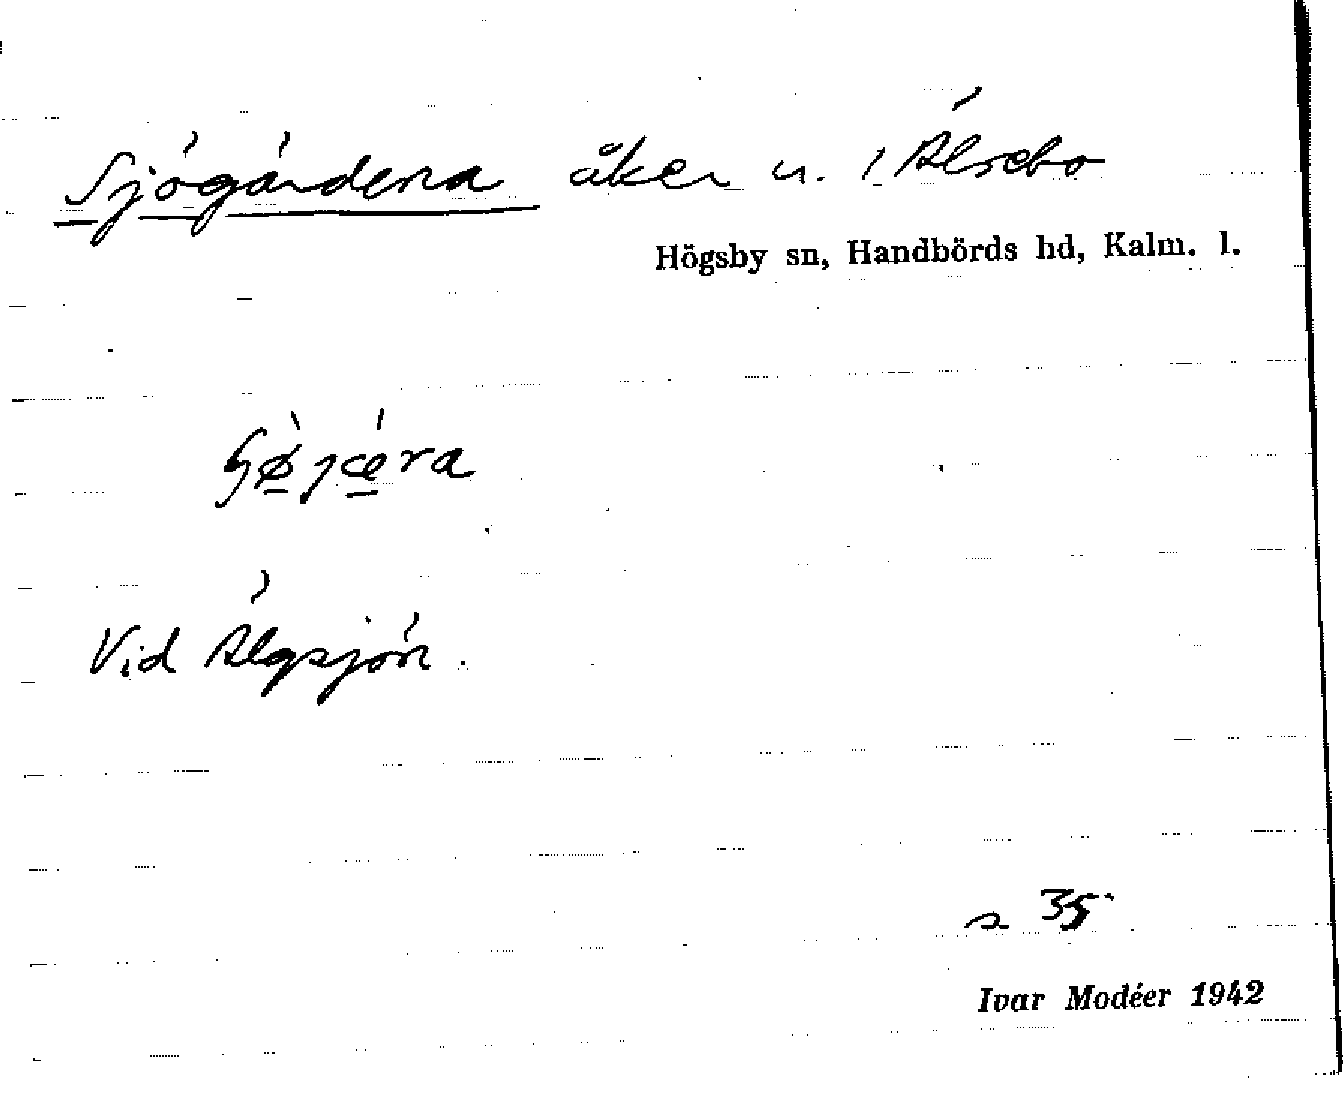 Sjögärdena åker u. Älsebo
Högsby sn, Handbörds hd, Kalm. l.
Vid Älgsjön.
s 35
Ivar Modéer 1942